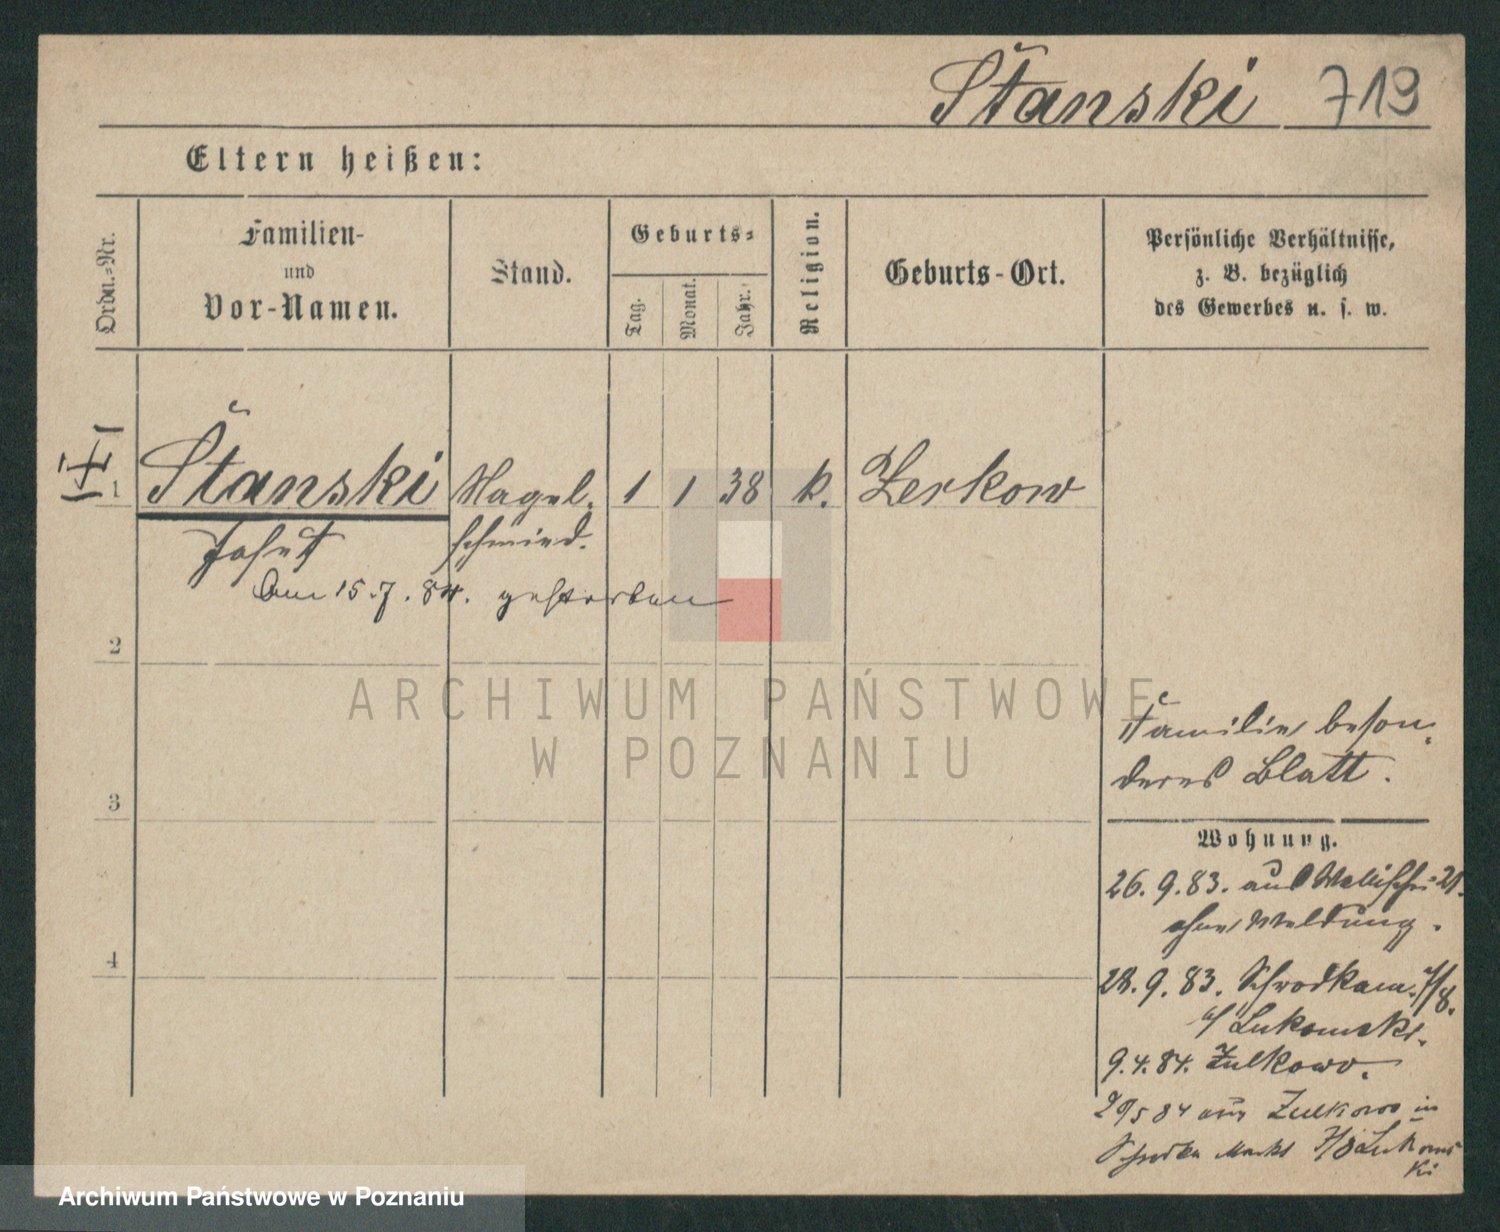 Stanski 719
Eltern heißen:
Ordn.-Nr.
Familien-
und
Vor-Namen.
Stand.
Geburts-
Tag.
Monat.
Jahr.
Religion.
Geburts-Ort.
Persönliche Verhältnisse,
z. B. bezüglich
des Gewerbes u. s. w.
1 Stanski Nagel- 1 1 38 k. Zerkow
schmied.
Am 15.7.84. gestorben
2
ARCHIWUM PAŃSTWOWE
W POZNANIU
Familie beson-
deres Blatt.
3
Wohnung.
26.9.83. aus Wallischei 21.
ohne Meldung.
4
28.9.83. Schrodkam. 7/8.
b/ Lukomski.
9.4.84. Zulkowo.
29 5 84 aus Zulkowo in
Schrodka Markt 7/8 Lukoms
ki
Archiwum Państwowe w Poznaniu